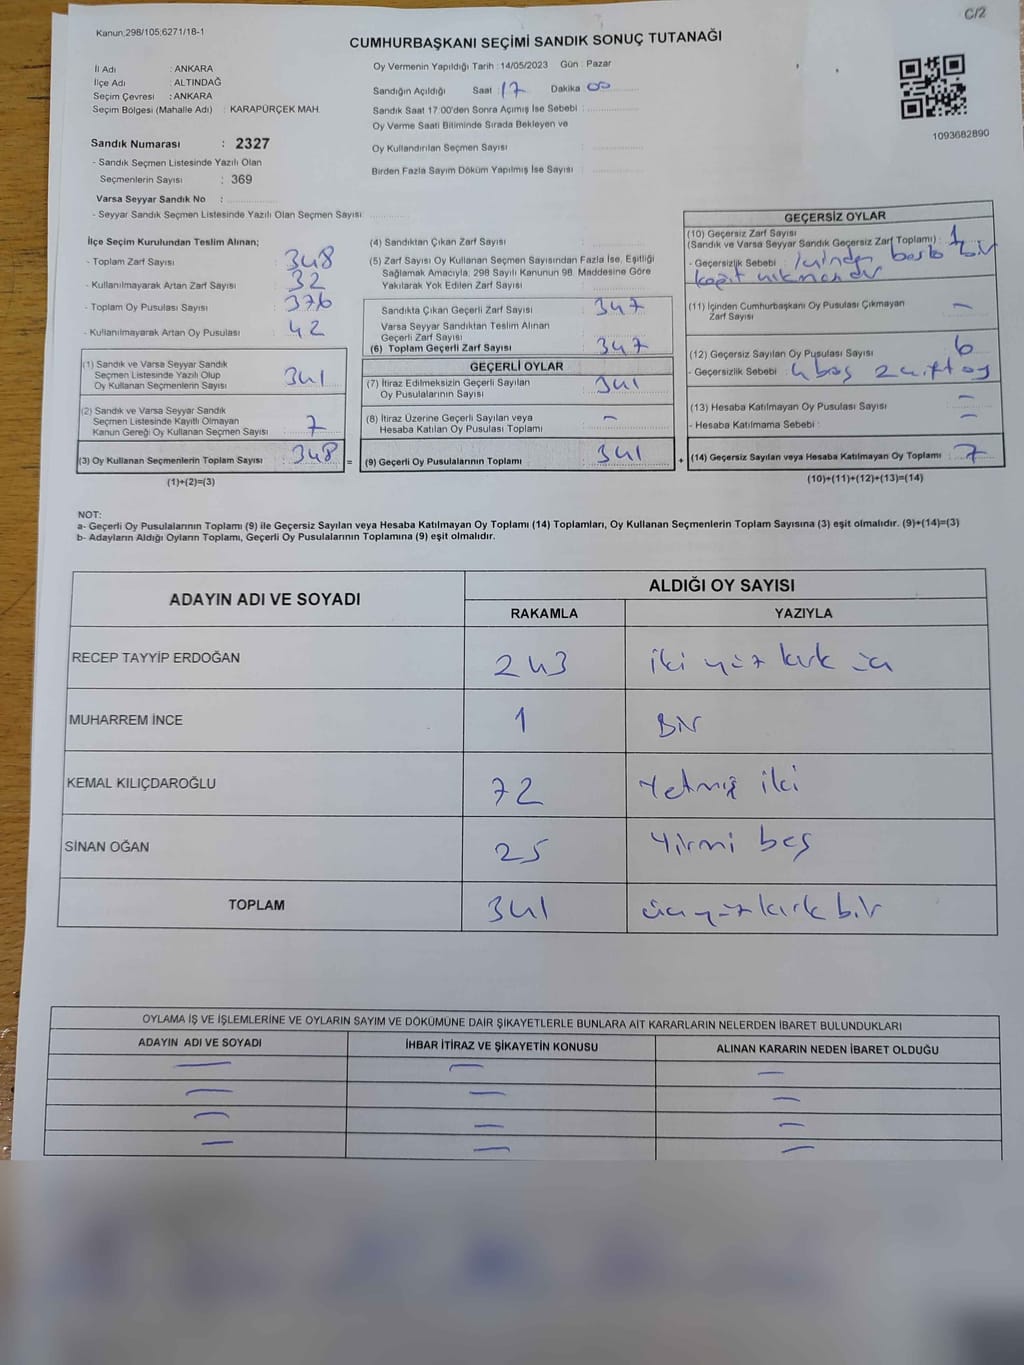 C/2
Kanun;298/105;6271/18-1
CUMHURBAŞKANI SEÇİMİ SANDIK SONUÇ TUTANAĞI
İl Adı : ANKARA
İlçe Adı : ALTINDAĞ
Seçim Çevresi : ANKARA
Seçim Bölgesi (Mahalle Adı) : KARAPÜRÇEK MAH.
Sandık Numarası : 2327
- Sandık Seçmen Listesinde Yazılı Olan
Seçmenlerin Sayısı : 369
Varsa Seyyar Sandık No :
- Seyyar Sandık Seçmen Listesinde Yazılı Olan Seçmen Sayısı:
Oy Vermenin Yapıldığı Tarih : 14/05/2023 Gün : Pazar
Sandığın Açıldığı Saat : 17 Dakika 00
Sandık Saat 17.00'den Sonra Açımış İse Sebebi :
Oy Verme Saati Bitiminde Sırada Bekleyen ve
Oy Kullandırılan Seçmen Sayısı :
Birden Fazla Sayım Döküm Yapılmış İse Sayısı :
1093682890
İlçe Seçim Kurulundan Teslim Alınan;
- Toplam Zarf Sayısı : 348
- Kullanılmayarak Artan Zarf Sayısı : 32
- Toplam Oy Pusulası Sayısı : 376
- Kullanılmayarak Artan Oy Pusulası : 42
(1) Sandık ve Varsa Seyyar Sandık
Seçmen Listesinde Yazılı Olup
Oy Kullanan Seçmenlerin Sayısı : 341
(2) Sandık ve Varsa Seyyar Sandık
Seçmen Listesinde Kayıtlı Olmayan
Kanun Gereği Oy Kullanan Seçmen Sayısı : 7
(3) Oy Kullanan Seçmenlerin Toplam Sayısı : 348 =
(1)+(2)=(3)
(4) Sandıktan Çıkan Zarf Sayısı :
(5) Zarf Sayısı Oy Kullanan Seçmen Sayısından Fazla İse, Eşitliği
Sağlamak Amacıyla, 298 Sayılı Kanunun 98. Maddesine Göre
Yakılarak Yok Edilen Zarf Sayısı :
Sandıkta Çıkan Geçerli Zarf Sayısı : 347
Varsa Seyyar Sandıktan Teslim Alınan
Geçerli Zarf Sayısı :
(6) Toplam Geçerli Zarf Sayısı : 347
GEÇERLİ OYLAR
(7) İtiraz Edilmeksizin Geçerli Sayılan
Oy Pusulalarının Sayısı : 341
(8) İtiraz Üzerine Geçerli Sayılan veya
Hesaba Katılan Oy Pusulası Toplamı : -
(9) Geçerli Oy Pusulalarının Toplamı : 341 +
GEÇERSİZ OYLAR
(10) Geçersiz Zarf Sayısı
(Sandık ve Varsa Seyyar Sandık Geçersiz Zarf Toplamı) : 1
- Geçersizlik Sebebi : İçinden başka bir
kağıt çıkmasıdır
(11) İçinden Cumhurbaşkanı Oy Pusulası Çıkmayan
Zarf Sayısı : -
(12) Geçersiz Sayılan Oy Pusulası Sayısı : 6
- Geçersizlik Sebebi : 4 boş 2 çift oy
(13) Hesaba Katılmayan Oy Pusulası Sayısı : -
- Hesaba Katılmama Sebebi : -
(14) Geçersiz Sayılan veya Hesaba Katılmayan Oy Toplamı : 7
(10)+(11)+(12)+(13)=(14)
NOT:
a- Geçerli Oy Pusulalarının Toplamı (9) ile Geçersiz Sayılan veya Hesaba Katılmayan Oy Toplamı (14) Toplamları, Oy Kullanan Seçmenlerin Toplam Sayısına (3) eşit olmalıdır. (9)+(14)=(3)
b- Adayların Aldığı Oyların Toplamı, Geçerli Oy Pusulalarının Toplamına (9) eşit olmalıdır.
ADAYIN ADI VE SOYADI
ALDIĞI OY SAYISI
RAKAMLA YAZIYLA
RECEP TAYYİP ERDOĞAN 243 iki yüz kırk üç
MUHARREM İNCE 1 Bir
KEMAL KILIÇDAROĞLU 72 Yetmiş iki
SİNAN OĞAN 25 Yirmi beş
TOPLAM 341 üç yüz kırk bir
OYLAMA İŞ VE İŞLEMLERİNE VE OYLARIN SAYIM VE DÖKÜMÜNE DAİR ŞİKAYETLERLE BUNLARA AİT KARARLARIN NELERDEN İBARET BULUNDUKLARI
ADAYIN ADI VE SOYADI İHBAR İTİRAZ VE ŞİKAYETİN KONUSU ALINAN KARARIN NEDEN İBARET OLDUĞU
— — —
— — —
— — —
— — —